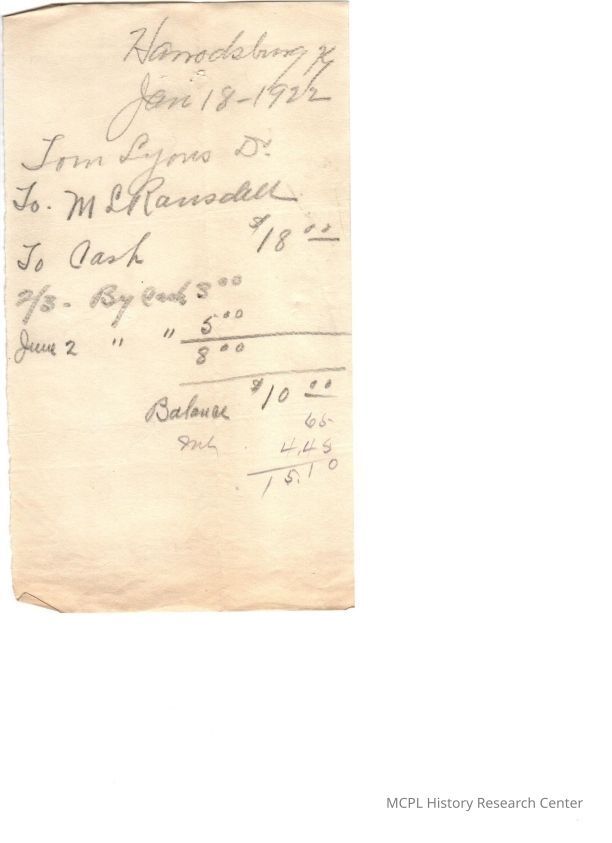 Harrodsburg Ky
Jan 18-1922
Tom Lyons Dr.
To. M L Ransdell
To Cash $18 00
2/3 - By Cash 3 00
June 2 " " 5 00
8 00
Balance $10 00
65
Int 4.45
15.10
MCPL History Research Center